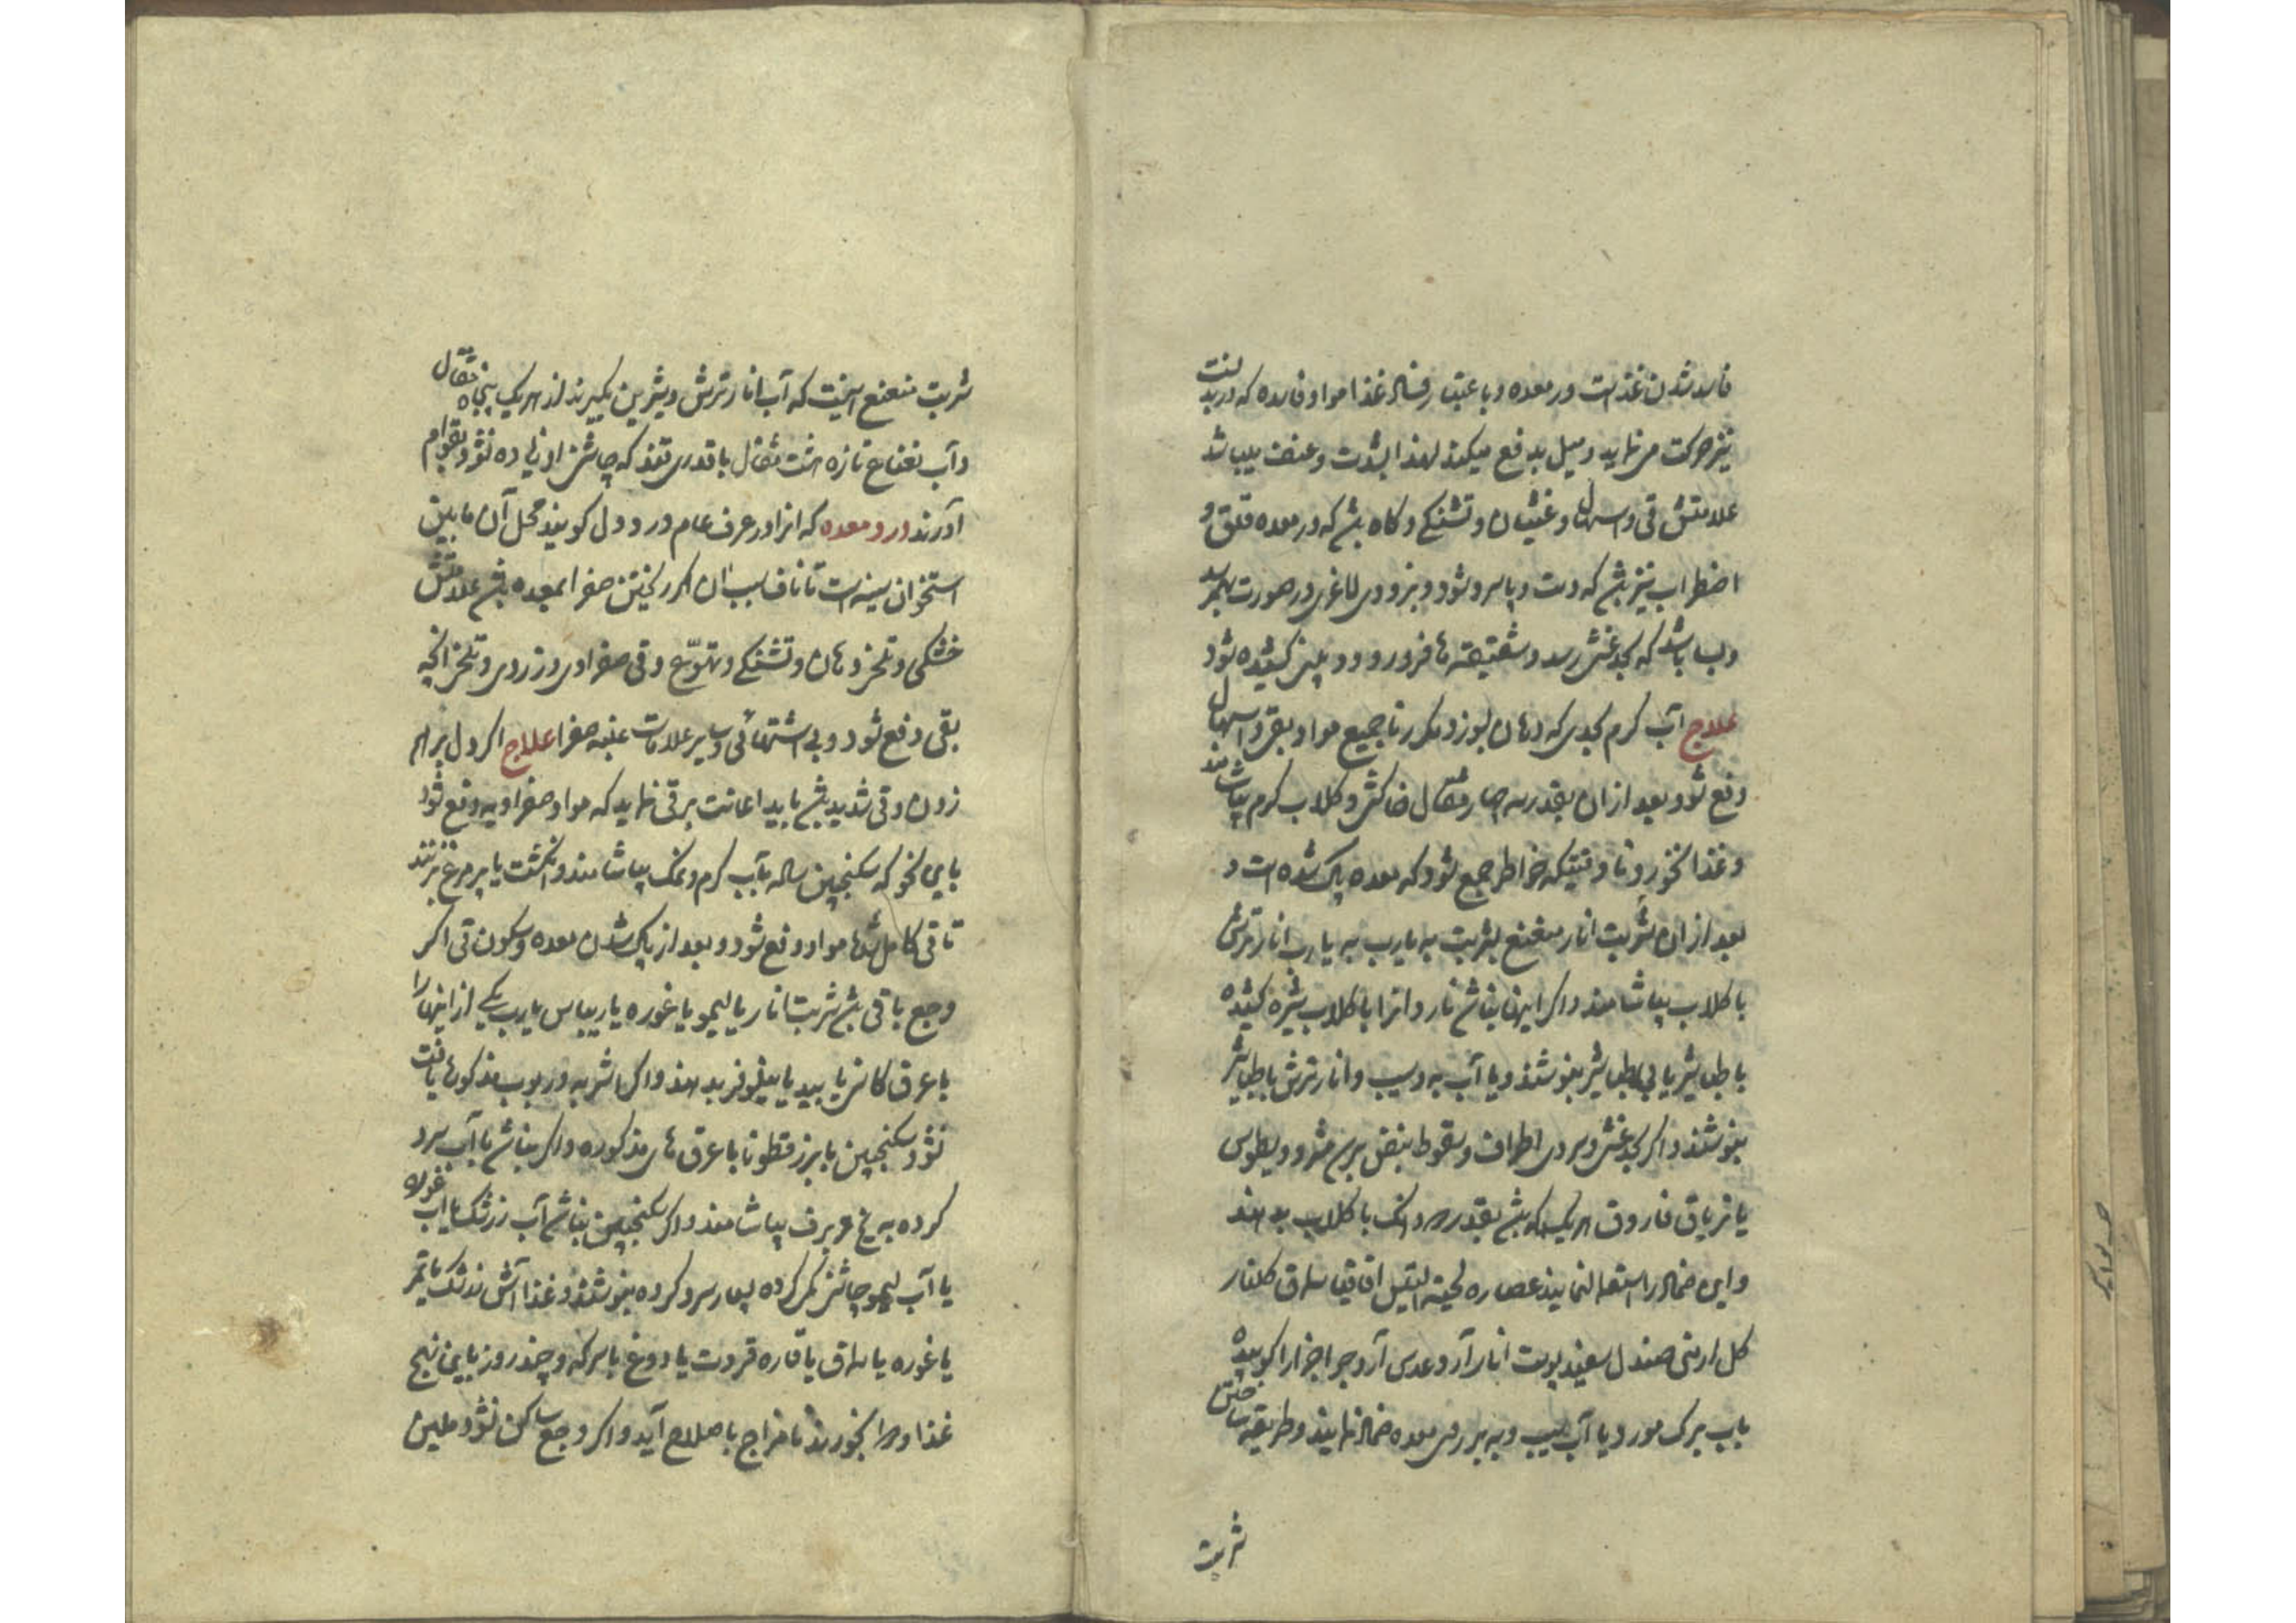 فاسد شدن غذاست در معده و باعتبار فساد غذا مواد فاسده که در بدنست
نیز حرکت می نماید و میل بدفع میکند لهذا بشدت و عنف میباشد
علامتش قی و اسهال و غثیان و تشنگی و کاه باشد که در معده قلق و
اضطراب نیز باشد که دست و پا سرد شود و بزودی لاغری در صورت
و بسا باشد که بحد غشی رسد و شقیقه ها فرو رود و بینی کشیده شود
علاج آب کرم بحدی که دهان نسوزد مکرر تا جمیع مواد بقی و اسهال
دفع شود بعد از ان بقدر سه چهار مثقال خاکشی و کلاب کرم بیاشامند
و غذا نخورد تا وقتیکه خواطر جمع شود که معده پاک شده است و
بعد از ان بشربت انار منعنع بشربت به یا رب به یا رب انار ترش
با کلاب بیاشامند و اکر اینها نباشد ناردانرا با کلاب شیره کشیده
با طباشیر یا بی طباشیر بنوشند و یا آب به و سیب و انار ترش با طباشیر
بنوشند و اکر بحد غشی و سردی اطراف و سقوط نبض برسد مثرودیطوس
یا تریاق فاروق هریک که باشد بقدر دانک با کلاب بدهند
و این ضماد را استعمال نمایند عصاره لحیة التیس اقاقیا سماق کلنار
کل ارمنی صندل سفید پوست انار آرد عدس آرد جو اجزا را کوبیده
بآب برک مورد یا آب سیب و به بر روی معده ضماد نمایند و طریقه ساختن
شربت
شربت منعنع اینست که آب انار ترش و شیرین بکیرند از هریک پنجاه مثقال
و آب نعناع تازه هشت مثقال با قدری قند که چاشنی او زیاده نشود بقوام
آورند درد معده که انرا در عرف عام درد دل کویند محل آن مابین
استخوان سینه است تا ناف سبب ان اکر ریختن صفرا بمعده باشد علامتش
خشکی و تلخی دهان و تشنکی و تهوّع و قی صفراوی و زردی و تلخی انچه
بقی دفع شود و بی اشتهائی و سایر علامات غلبه صفرا علاج اکر دل برهم
زدن و قی شدید باشد باید اعانت بر قی نماید که مواد صفراویه دفع شود
باین نحو که سکنجبین ساده بآب کرم و نمک بیاشامند و انکشت یا پر مرغ بزنند
تا قی کامل شود تا مواد دفع شود و بعد از پاک شدن معده و سکون قی اکر
وجع باقی باشد شربت انار یا لیمو یا غوره یا ریباس یا رب یکی از اینها را
با عرق کاسنی یا بید یا نیلوفر بدهند و اکر اشربه و ربوب مذکوره یافت
نشود سکنجبین با بزرقطونا با عرق های مذکوره و اکر نباشد با آب سرد
کرده به یخ و برف بیاشامند و اکر سکنجبین نباشد آب زرشک یا آب غوره
یا آب لیمو چاشنی کمی کرده بسیار سرد کرده بنوشند و غذا آش زرشک یا تمر
یا غوره یا سماق یا قاره قروت یا دوغ یا سرکه و چند روز باین نهج
غذا و دوا بخورند تا مزاج باصلاح آید و اکر وجع ساکن نشود ملین